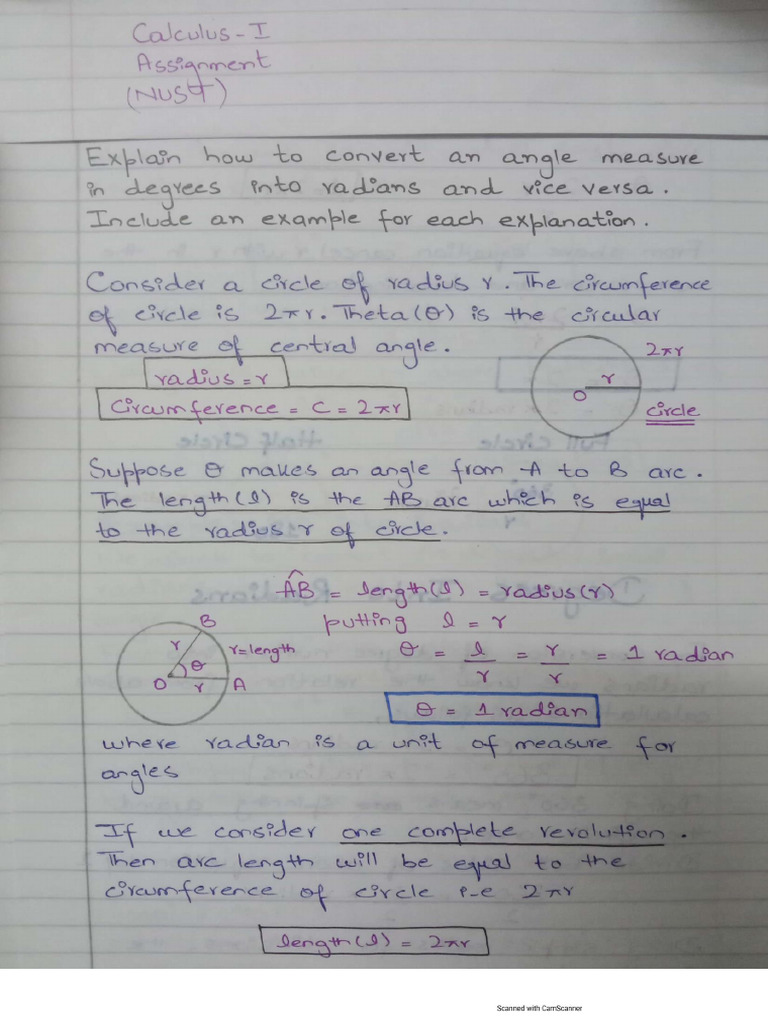 Calculus - I
Assignment
(NUST)
Explain how to convert an angle measure
in degrees into radians and vice versa.
Include an example for each explanation.
Consider a circle of radius r. The circumference
of circle is 2πr. Theta (θ) is the circular
measure of central angle.
radius = r
Circumference = C = 2πr
2πr
r
O
circle
Suppose θ makes an angle from A to B arc.
The length (l) is the AB arc which is equal
to the radius r of circle.
A͡B = length (l) = radius (r)
putting l = r
θ = l/r = r/r = 1 radian
θ = 1 radian
B
r
r = length
θ
O
r
A
where radian is a unit of measure for
angles
If we consider one complete revolution.
Then arc length will be equal to the
circumference of circle i-e 2πr
length (l) = 2πr
Scanned with CamScanner